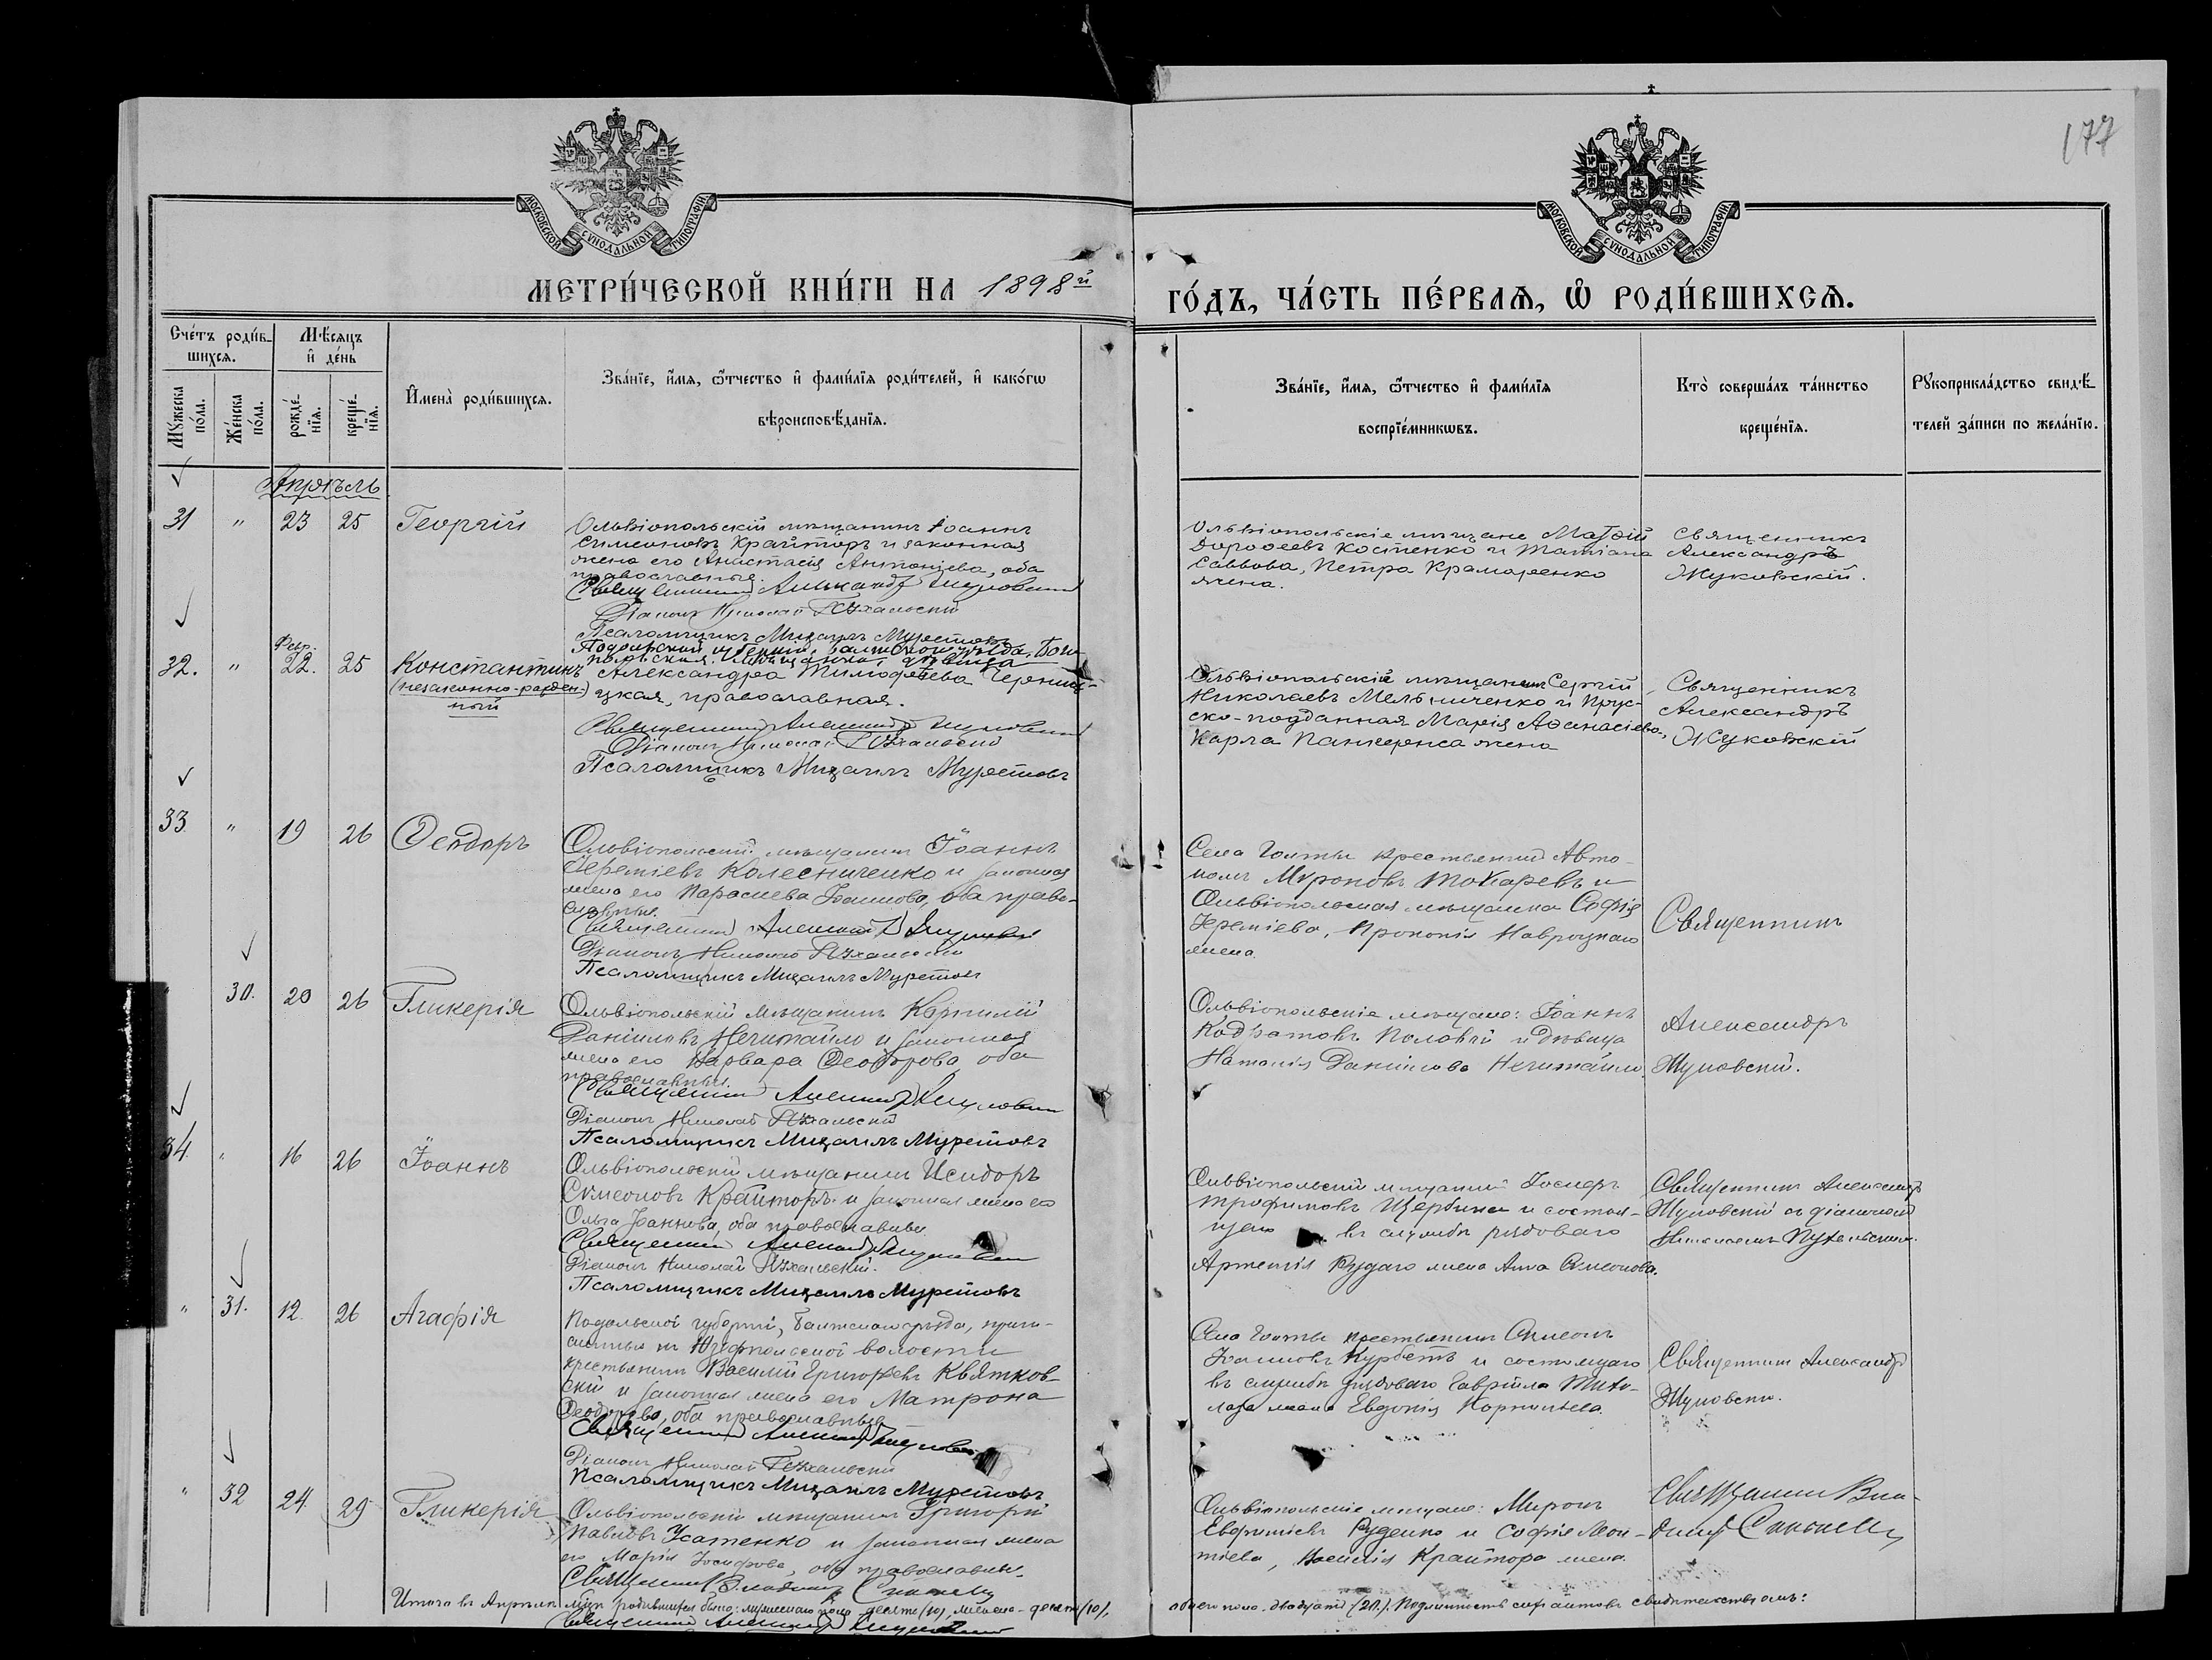 177
МОСКОВСКОЙ СѴНОДАЛЬНОЙ ТИПОГРАФІИ
МОСКОВСКОЙ СѴНОДАЛЬНОЙ ТИПОГРАФІИ
МЕТРИ́ЧЕСКОЙ КНИ́ГИ НА 1898й
ГО́ДЪ, ЧА́СТЬ ПЕ́РВАѦ, Ѽ РОДИ́ВШИХСѦ.
Сче́тъ роди́в-
шихсѧ.
Мѣ́сѧцъ
и҆ де́нь
Мꙋ́жеска по́ла.
Же́нска по́ла.
рожде́нїѧ.
креще́нїѧ.
И҆мена̀ роди́вшихсѧ.
Зва́нїе, и҆́мѧ, ѻ҆́тчество и҆ фами́лїѧ роди́телей, и҆ како́гѡ
вѣроисповѣ́данїѧ.
Зва́нїе, и҆́мѧ, ѻ҆́тчество и҆ фами́лїѧ
воспрїе́мникѡвъ.
Кто̀ соверша́лъ та́инство
креще́нїѧ.
Рꙋкоприкла́дство свидѣ́-
телей за́писи по жела́нїю.
Апрѣль
31 " 23 25 Георгій
Ольвіопольскій мѣщанинъ Іоаннъ
Симеоновъ Крайторъ и законная
жена его Анастасія Антоніева, оба
православные.
Священникъ Александръ Жуковскій
Діаконъ Николай Пухальскій
Псаломщикъ Михаилъ Муретовъ
Ольвіопольскіе мѣщане Матѳій
Дороѳеевъ Костенко и Татіана
Саввова, Петра Крамаренко
жена.
Священникъ
Александръ
Жуковскій.
32. " Февр. 22. 25 Константинъ
(незаконно-рожден-
ный)
Подольской губерніи, Балтскаго уѣзда, Бого-
польская мѣщанка, дѣвица
Александра Тимоѳеева Черниц-
цкая, православная.
Священникъ Александръ Жуковскій
Діаконъ Николай Пухальскій
Псаломщикъ Михаилъ Муретовъ
Ольвіопольскій мѣщанинъ Сергій
Николаевъ Мельниченко и Прус-
ско-подданная Марія Аѳанасіева,
Карла жена
Священникъ
Александръ
Жуковскій
33. " 19 26 Ѳеодоръ
Ольвіопольскій мѣщанинъ Іоаннъ
Іереміевъ Колесниченко и законная
жена его Параскева Іоаннова, оба право-
славные.
Священникъ Александръ Жуковскій
Діаконъ Николай Пухальскій
Псаломщикъ Михаилъ Муретовъ
Села Голты крестьянинъ Авто-
номъ Мироновъ Токаревъ и
Ольвіопольская мѣщанка Софія
Іереміева, Прокопія Навроцкаго
жена.
Священникъ
" 30. 20 26 Гликерія
Ольвіопольскій мѣщанинъ Корнилій
Даніиловъ Нечитайло и законная
жена его Варвара Ѳеодорова, оба
православные.
Священникъ Александръ Жуковскій
Діаконъ Николай Пухальскій
Псаломщикъ Михаилъ Муретовъ
Ольвіопольскіе мѣщане: Іоаннъ
Кодратовъ Половой и дѣвица
Наталія Даніилова Нечитайло.
Александръ
Жуковскій.
34 " 16 26 Іоаннъ
Ольвіопольскій мѣщанинъ Исидоръ
Симеоновъ Крайторъ и законная жена его
Ольга Іоаннова, оба православные.
Священникъ Александръ Жуковскій
Діаконъ Николай Пухальскій.
Псаломщикъ Михаилъ Муретовъ
Ольвіопольскій мѣщанинъ Іосифъ
Трофимовъ Щербина и состоя-
щаго въ службѣ рядоваго
Артемія Рудаго жена Анна Симеонова.
Священникъ Александръ
Жуковскій съ діакономъ
Николаемъ Пухальскимъ.
" 31. 12. 26 Агафія
Подольской губерніи, Балтскаго уѣзда, припи-
санный къ Юзефпольской волости
крестьянинъ Василій Григорьевъ Квятков-
скій и законная жена его Матрона
Ѳеодорова, оба православные
Священникъ Александръ Жуковскій
Діаконъ Николай Пухальскій
Псаломщикъ Михаилъ Муретовъ
Села Голты крестьянинъ Симеонъ
Іоанновъ Курбетъ и состоящаго
въ службѣ рядоваго Гавріила
жена Евдокія Корнильева.
Священникъ Александръ
Жуковскій.
" 32 24. 29 Гликерія
Ольвіопольскій мѣщанинъ Григорій
Павловъ Усатенко и законная жена
его Марія Іосифова, оба православные.
Священникъ Владиміръ
Ольвіопольскіе мѣщане: Миронъ
Евфиміевъ Руденко и Софія
Василія Крайтора жена.
Священникъ Вла-
диміръ
Итого въ Апрѣлѣ мѣс. родившихся было: мужескаго пола десять (10), женска - десять (10),
обоего пола - двадцать (20). Подлинность сихъ актовъ свидѣтельствуемъ:
Священникъ Александръ Жуковскій